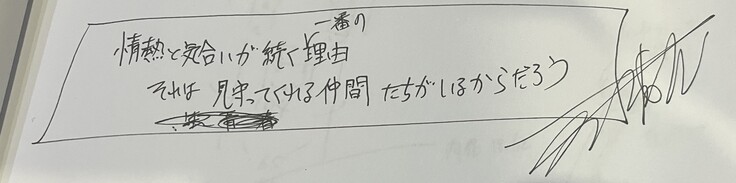 一番の
情熱と気合いが続く理由
それは見守ってくれる仲間たちがいるからだろう